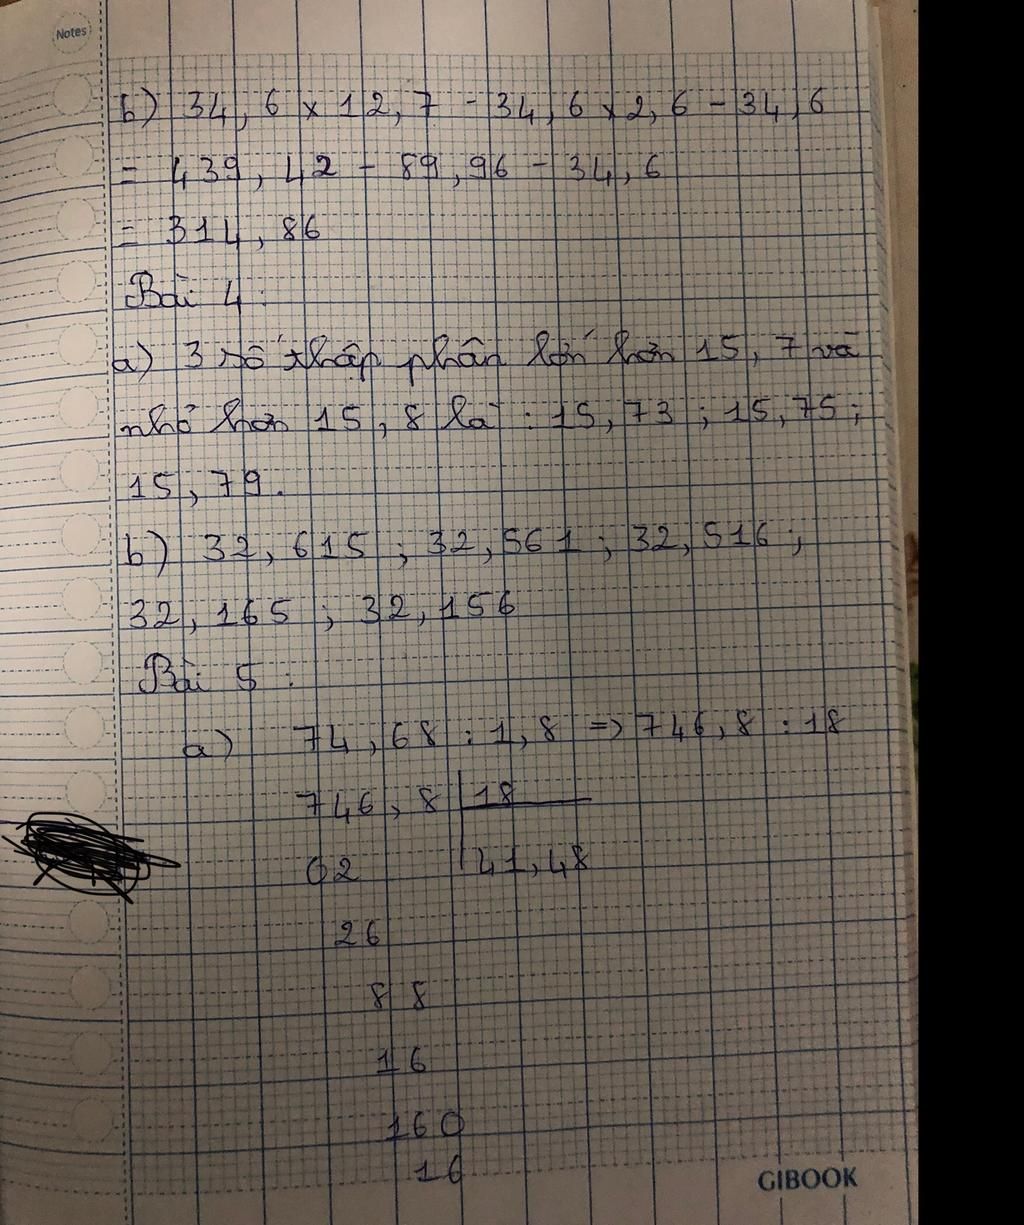 Notes
b) 34,6 x 12,7 - 34,6 x 2,6 - 34,6
= 439,42 - 89,96 - 34,6
= 314,86
Bài 4:
a) 3 số thập phân lớn hơn 15,7 và
nhỏ hơn 15,8 là: 15,73; 15,75;
15,79.
b) 32,615; 32,561; 32,516;
32,165; 32,156
Bài 5:
a) 74,68 : 1,8 => 746,8 : 18
746,8 18
02 41,48
26
88
16
160
16
GIBOOK